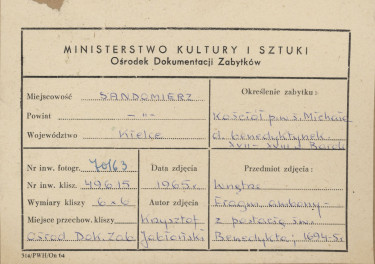 MINISTERSTWO KULTURY I SZTUKI
Ośrodek Dokumentacji Zabytków
Miejscowość SANDOMIERZ
Powiat - „ -
Województwo Kielce
Określenie zabytku:
Kościół p.w. ś. Michała
d. benedyktynek
XVII - XVIII w. Barok
Nr inw. fotogr. 70163
Nr inw. klisz. 49615
Wymiary kliszy 6 x 6
Miejsce przechow. kliszy
Ośrod. Dok. Zab.
Data zdjęcia
1965 r.
Autor zdjęcia
Krzysztof
Jabłoński
Przedmiot zdjęcia:
Wnętrze
Fragm. ambony -
z postacią św.
Benedykta, 1694-5r
514/PWH/On 64